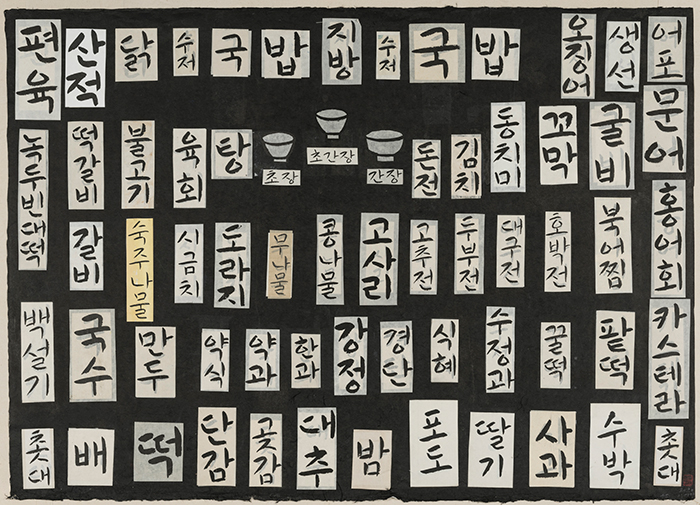 편육 산적 닭 수저 국 밥 지방 수저 국 밥 오징어 생선 어포
녹두빈대떡 떡갈비 불고기 육회 탕 초장 초간장 간장 돈전 김치 동치미 꼬막 굴비 문어
갈비 숙주나물 시금치 도라지 무나물 콩나물 고사리 고추전 두부전 대구전 호박전 북어찜 홍어회
백설기 국수 만두 약식 약과 한과 강정 경단 식혜 수정과 꿀떡 팥떡 카스테라
촛대 배 떡 단감 곶감 대추 밤 포도 딸기 사과 수박 촛대